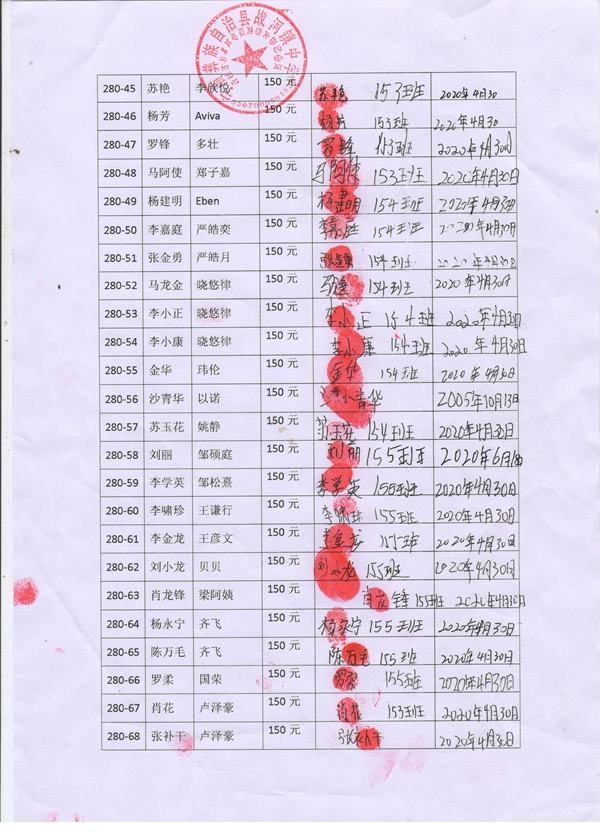 彝族自治县战河镇中学
280-45 苏艳 李欣悦 150 元 苏艳 153班 2020年4月30
280-46 杨芳 Aviva 150 元 杨芳 153班 2020年4月30
280-47 罗锋 多壮 150 元 罗锋 153班 2020年4月30日
280-48 马阿使 郑子嘉 150 元 马阿使 153班 2020年4月30日
280-49 杨建明 Eben 150 元 杨建明 154班 2020年4月30日
280-50 李嘉庭 严皓奕 150 元 李嘉庭 154班 2020年4月30日
280-51 张金勇 严皓月 150 元 154班 2020年4月30日
280-52 马龙金 晓悠律 150 元 154班 2020年4月30日
280-53 李小正 晓悠律 150 元 李小正 154班 2020年4月30日
280-54 李小康 晓悠律 150 元 李小康 154班 2020年4月30日
280-55 金华 玮伦 150 元 金华 154班 2020年4月30日
280-56 沙青华 以诺 150 元 沙小青华 2005年10月13日
280-57 苏玉花 姚静 150 元 苏玉花 154班 2020年4月30日
280-58 刘丽 邹硕庭 150 元 刘丽 155班 2020年6月
280-59 李学英 邹松熹 150 元 李学英 155班 2020年4月30日
280-60 李啸珍 王谦行 150 元 李啸珍 155班 2020年4月30日
280-61 李金龙 王彦文 150 元 李金龙 155班 2020年4月30日
280-62 刘小龙 贝贝 150 元 刘小龙 155班 2020年4月30日
280-63 肖龙锋 梁阿姨 150 元 肖龙锋 155班 2020年4月30日
280-64 杨永宁 齐飞 150 元 杨永宁 155班 2020年4月30日
280-65 陈万毛 齐飞 150 元 陈万毛 155班 2020年4月30日
280-66 罗柔 国荣 150 元 罗柔 155班 2020年4月30日
280-67 肖花 卢泽豪 150 元 肖花 153班 2020年4月30日
280-68 张补干 卢泽豪 150 元 张补干 2020年4月30日